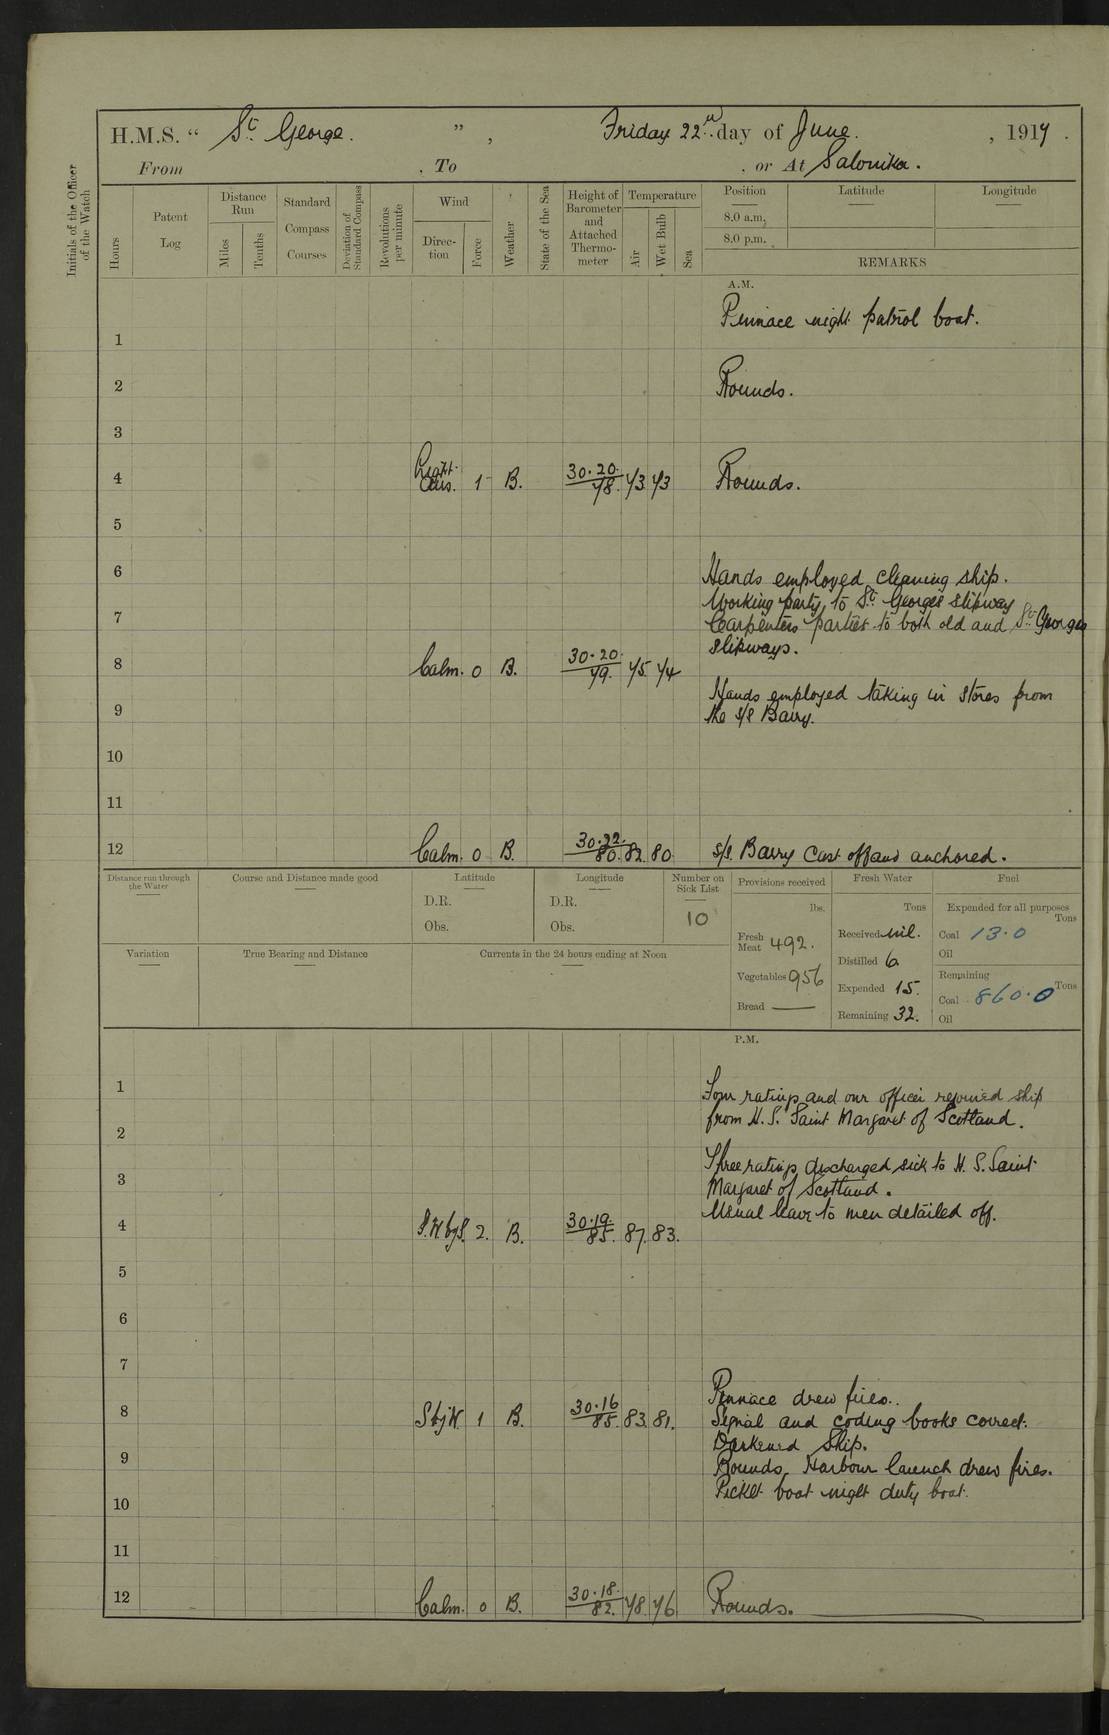 H.M.S. “ St George. ” , Friday 22nd day of June. , 1917 .
From , To , or At Salonika.
Initials of the Officer of the Watch
Hours
Patent Log
Distance Run
Miles
Tenths
Standard Compass Courses
Deviation of Standard Compass
Revolutions per minute
Wind
Direction
Force
Weather
State of the Sea
Height of Barometer and Attached Thermometer
Temperature
Air
Wet Bulb
Sea
Position Latitude Longitude
8.0 a.m.
8.0 p.m.
REMARKS
A.M.
Pinnace night patrol boat.
1
2 Rounds.
3
4 Light airs. 1 B. 30.20. 78. 73 73 Rounds.
5
6 Hands employed cleaning ship.
Working party to St Georges slipway
7 Carpenters parties to both old and St Georges
slipways.
8 Calm. 0 B. 30.20. 79. 75 74
Hands employed taking in stores from
9 the s/s Barry.
10
11
12 Calm. 0 B. 30.22. 80. 82. 80 s/s. Barry cast off and anchored.
Distance run through the Water
Course and Distance made good
Latitude
D.R.
Obs.
Longitude
D.R.
Obs.
Number on Sick List
10
Provisions received
lbs.
Fresh Meat 492.
Vegetables 956
Bread —
Fresh Water
Tons
Received nil.
Distilled 6
Expended 15.
Remaining 32.
Fuel
Expended for all purposes
Tons
Coal 13.0
Oil
Remaining
Tons
Coal 860.0
Oil
Variation
True Bearing and Distance
Currents in the 24 hours ending at Noon
P.M.
1 Four ratings and one officer rejoined ship
from H.S. Saint Margaret of Scotland.
2
Three ratings discharged sick to H.S. Saint
3 Margaret of Scotland.
Usual leave to men detailed off.
4 S.W by S. 2. B. 30.19. 85. 87. 83.
5
6
7
Pinnace drew fires.
8 S by W 1 B. 30.16 85. 83. 81. Signal and coding books correct.
Darkened Ship.
9 Rounds, Harbour launch drew fires.
Picket boat night duty boat.
10
11
12 Calm. 0 B. 30.18. 82. 78. 76 Rounds.